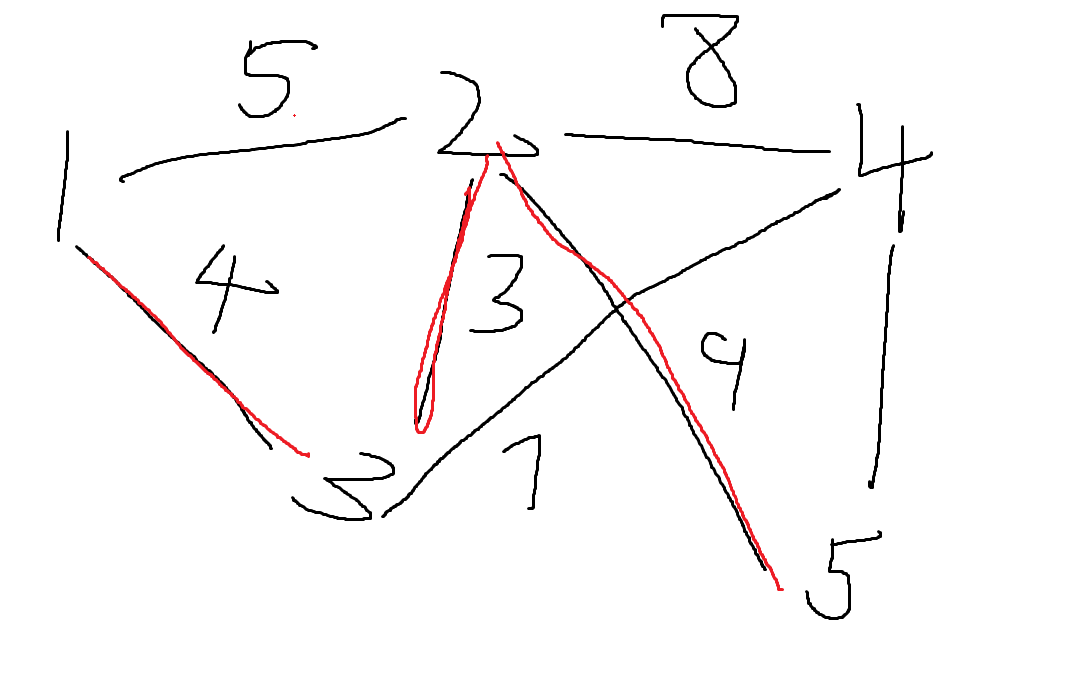 5 8
1 2 4
4 3 9
3 7 5